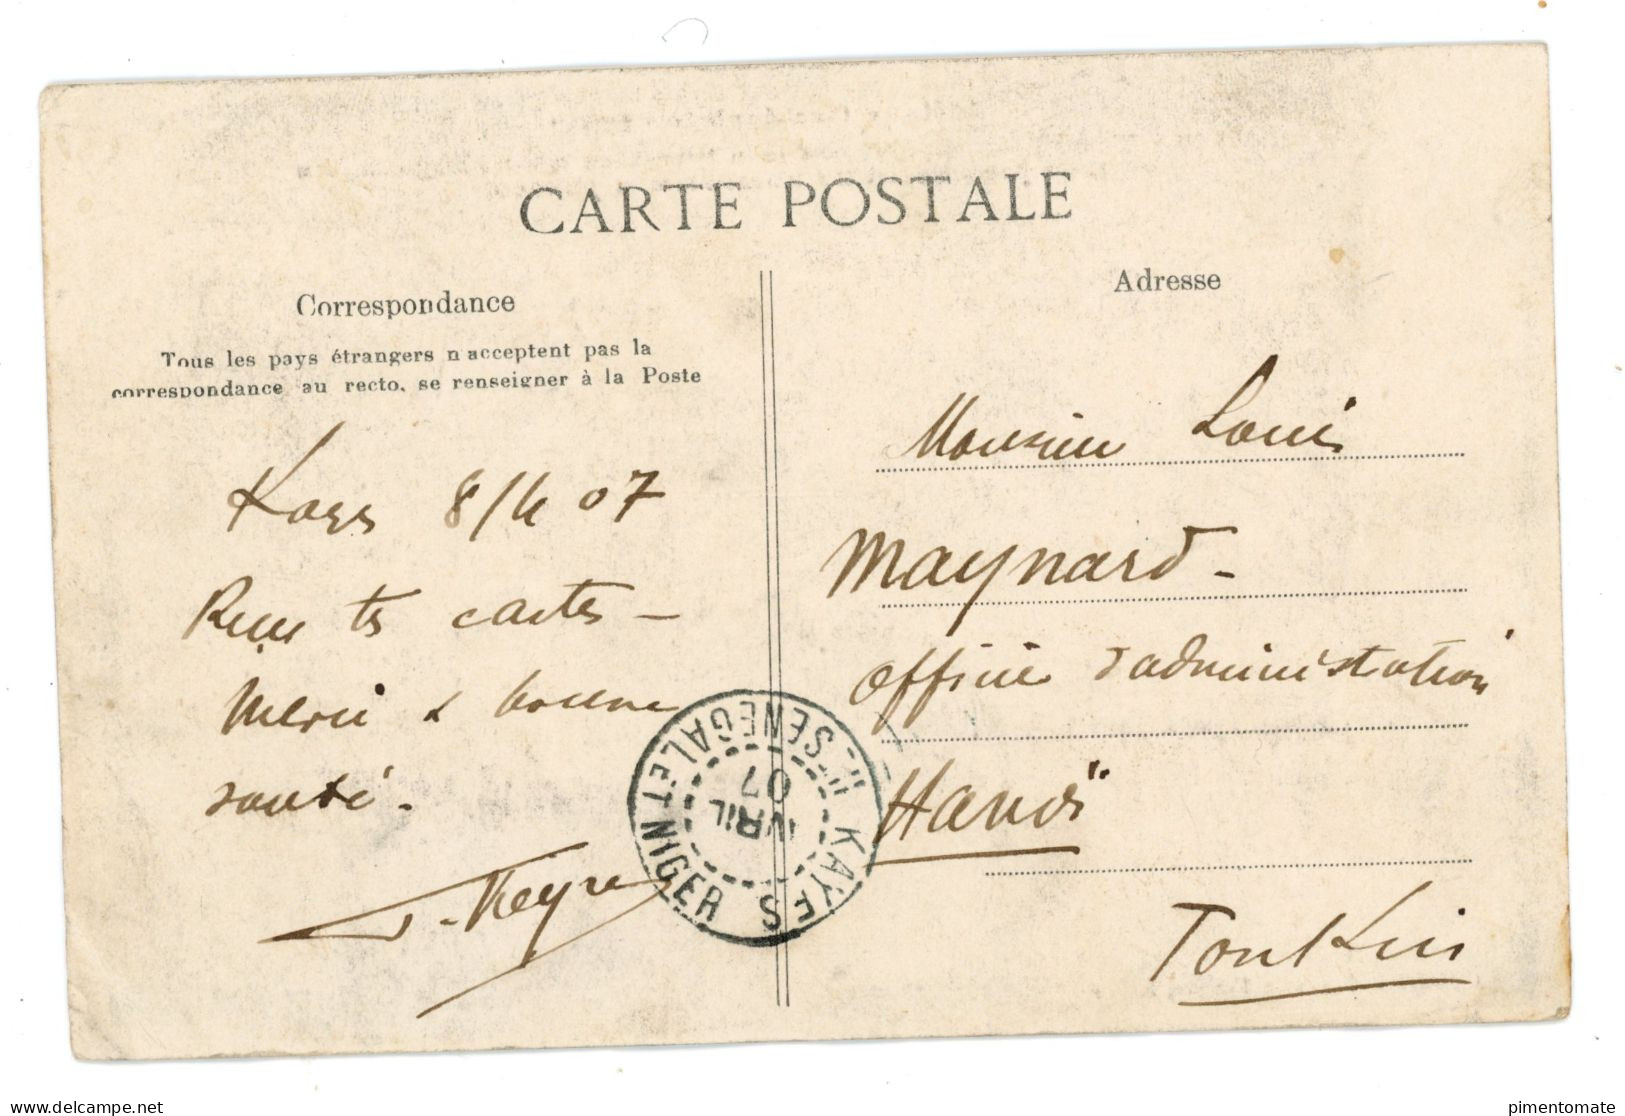 CARTE POSTALE
Correspondance
Tous les pays étrangers n'acceptent pas la
correspondance au recto, se renseigner à la Poste
Kayes 8/4 07
Reçu tes cartes -
Merci & bonne
santé.
Adresse
Monsieur Louis
Maynard -
Officier d'administration
Hanoï
Tonkin
KAYES
Hᵗ-SÉNÉGAL ET NIGER
AVRIL
07
delcampe.net
pimentomate